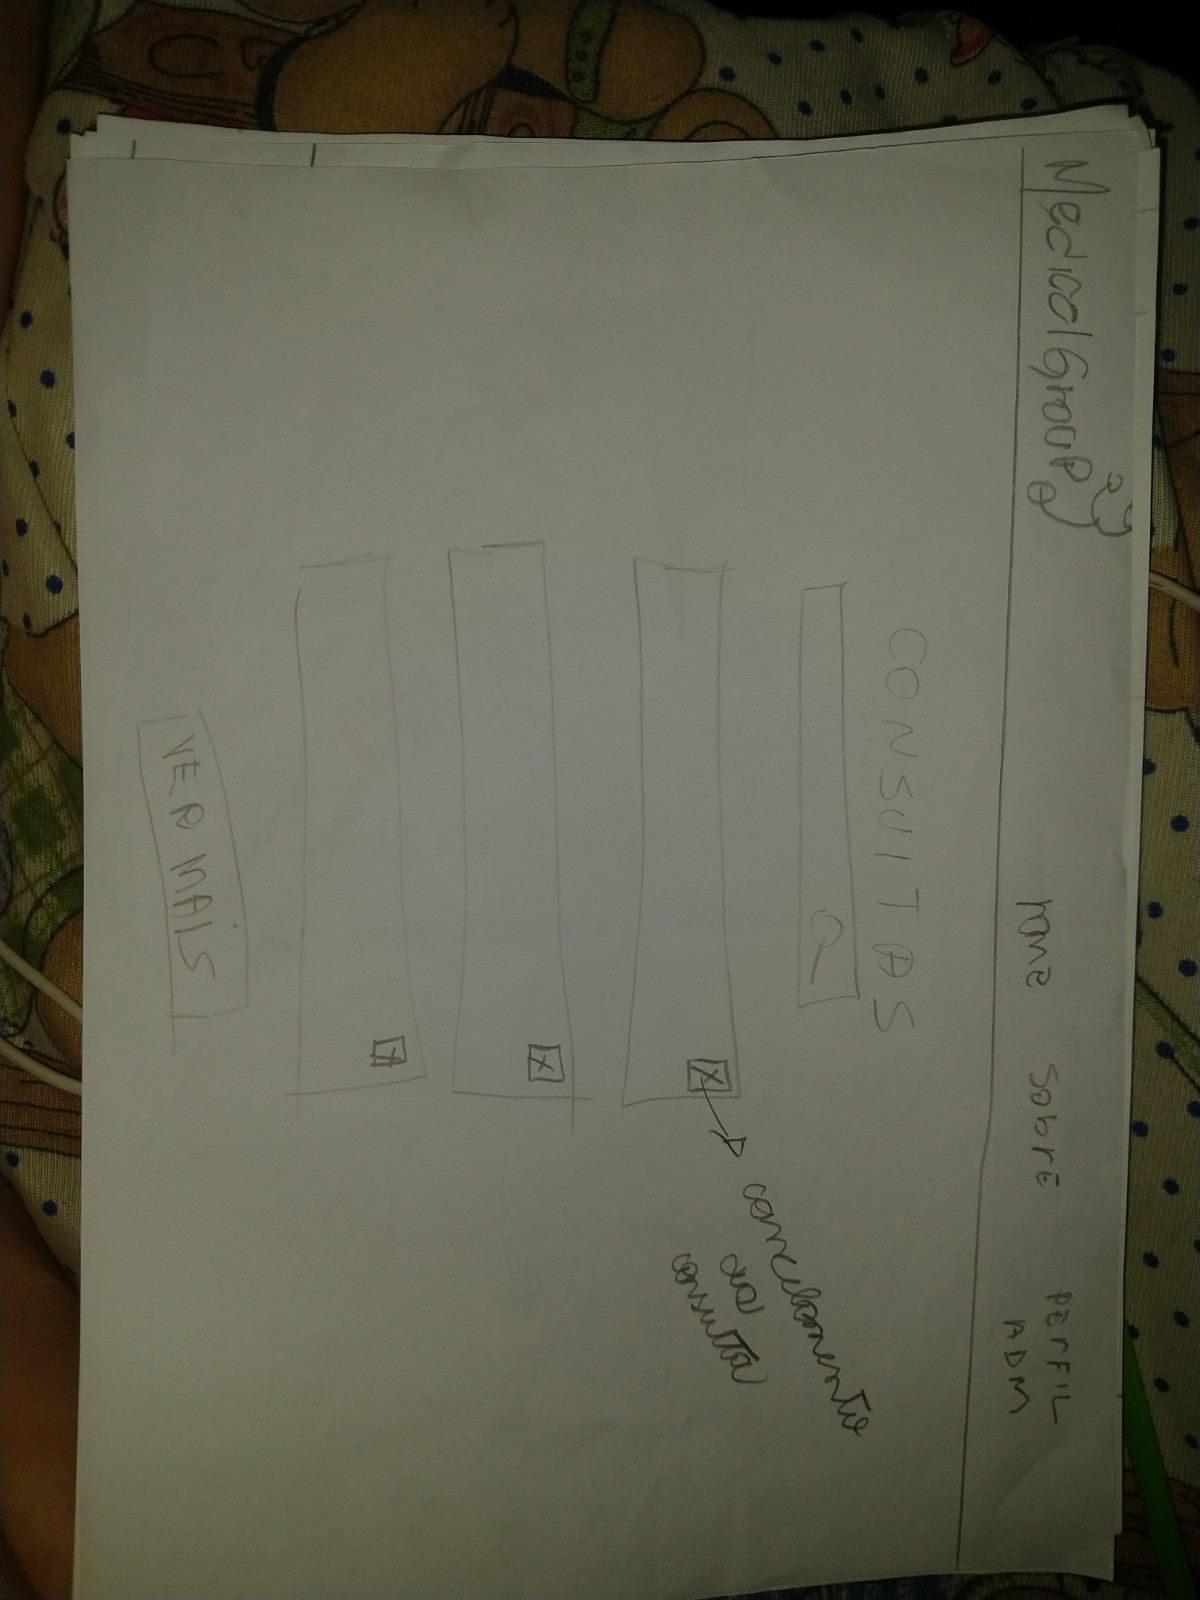 MedicalGroup
Home
Sobre
Perfil
ADM
CONSULTAS
X
cancelamento
da
consulta
X
X
VER MAIS